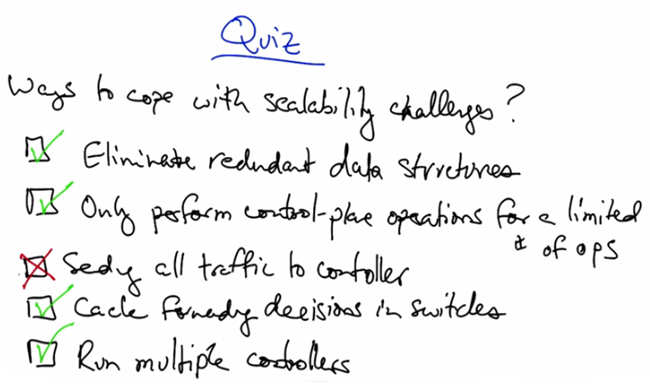 Quiz
Ways to cope with scalability challenges?
Eliminate redundant data structures
Only perform control-plane operations for a limited
# of ops
Sending all traffic to controller
Cache forwarding decisions in switches
Run multiple controllers